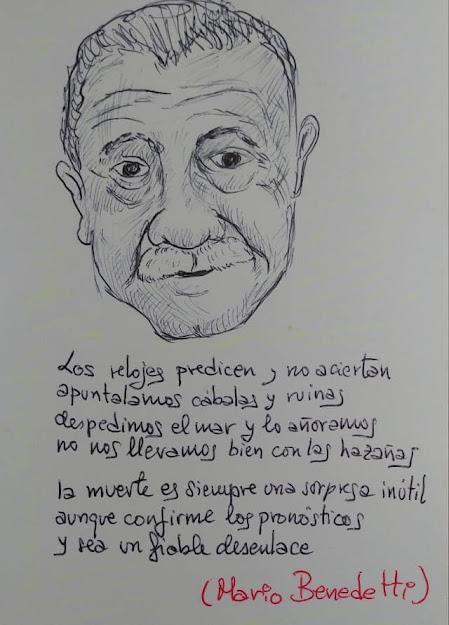 Los relojes predicen y no aciertan
apuntalamos cábalas y ruinas
despedimos el mar y lo añoramos
no nos llevamos bien con las hazañas
la muerte es siempre una sorpresa inútil
aunque confirme los pronósticos
y sea un fiable desenlace
(Mario Benedetti)